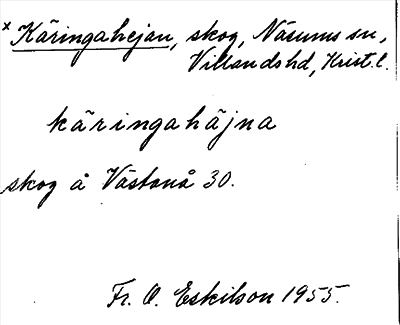 x Käringahejan, skog, Näsums sn,
Villands hd, Krist. l.
käringahäjna
skog å Västanå 30.
Fr. O. Eskilson 1955.